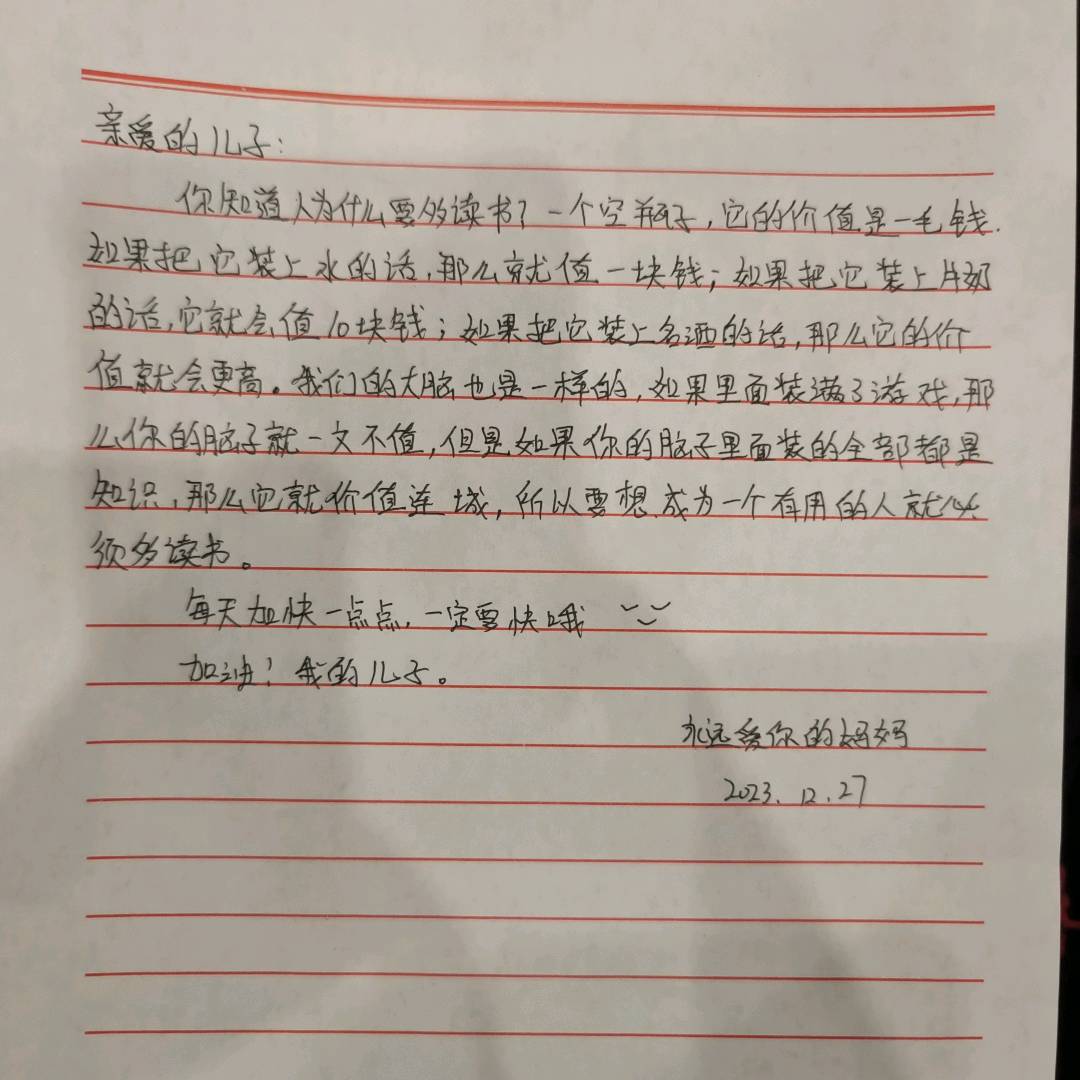 亲爱的儿子:
你知道人为什么要多读书?一个空瓶子,它的价值是一毛钱.
如果把它装上水的话,那么就值一块钱;如果把它装上片奶
的话,它就会值10块钱;如果把它装上名酒的话,那么它的价
值就会更高。我们的大脑也是一样的,如果里面装满了游戏,那
么你的脑子就一文不值,但是如果你的脑子里面装的全部都是
知识,那么它就价值连城,所以要想成为一个有用的人就必
须多读书。
每天加快一点点,一定要快哦
加油!我的儿子。
永远爱你的妈妈
2023.12.27